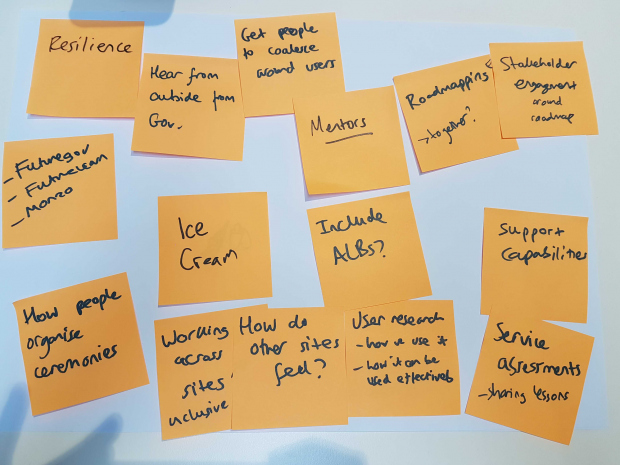 Resilience
Hear from
outside from
Gov.
Get people
to coalesce
around users
Mentors
Roadmapping
→ together?
Stakeholder
engagement
around
roadmap
- Futuregov
- Futurelearn
- Monzo
Ice
Cream
Include
ALBs?
Support
Capabilities
How people
organise
ceremonies
Working
across
sites
inclusive
How do
other sites
feel?
User research
- how we use it
- how it can be
used effectively
Service
assessments
- sharing lessons